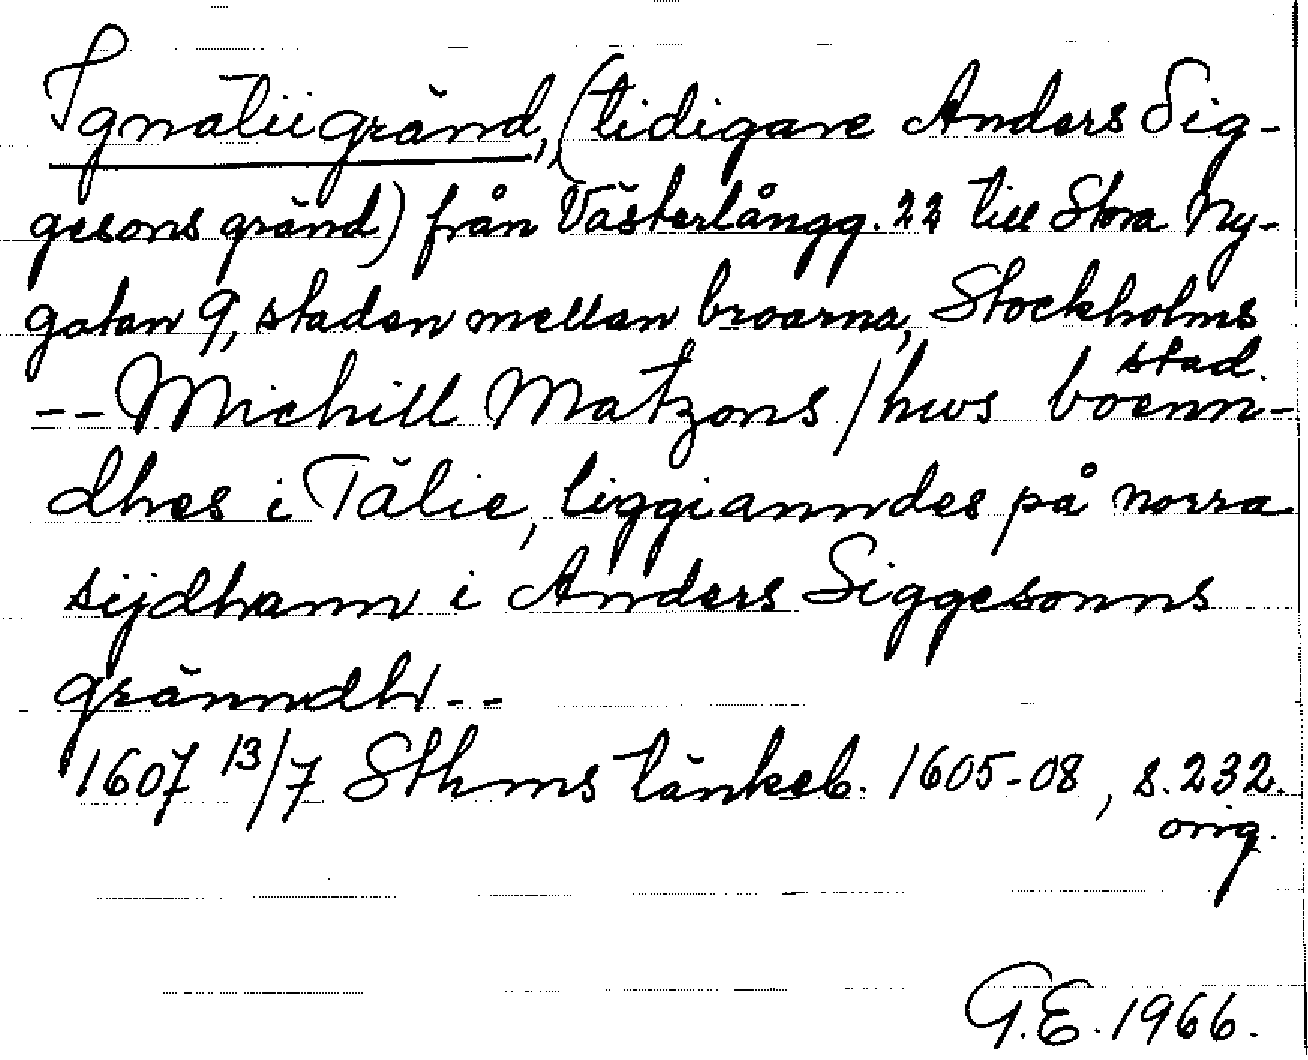 Ignatiigränd, (tidigare Anders Sig-
gesons gränd) från Västerlångg. 22 till Stora Ny-
gatan 9, staden mellan broarna, Stockholms
stad.
-- Michill Matzons / hws boenn-
dhes i Tälie, liggianndes på norra
sijdhann i Anders Siggesonns
gränndh --
1607 13/7 Sthms tänkeb. 1605-08, s. 232.
orig.
G.E. 1966.